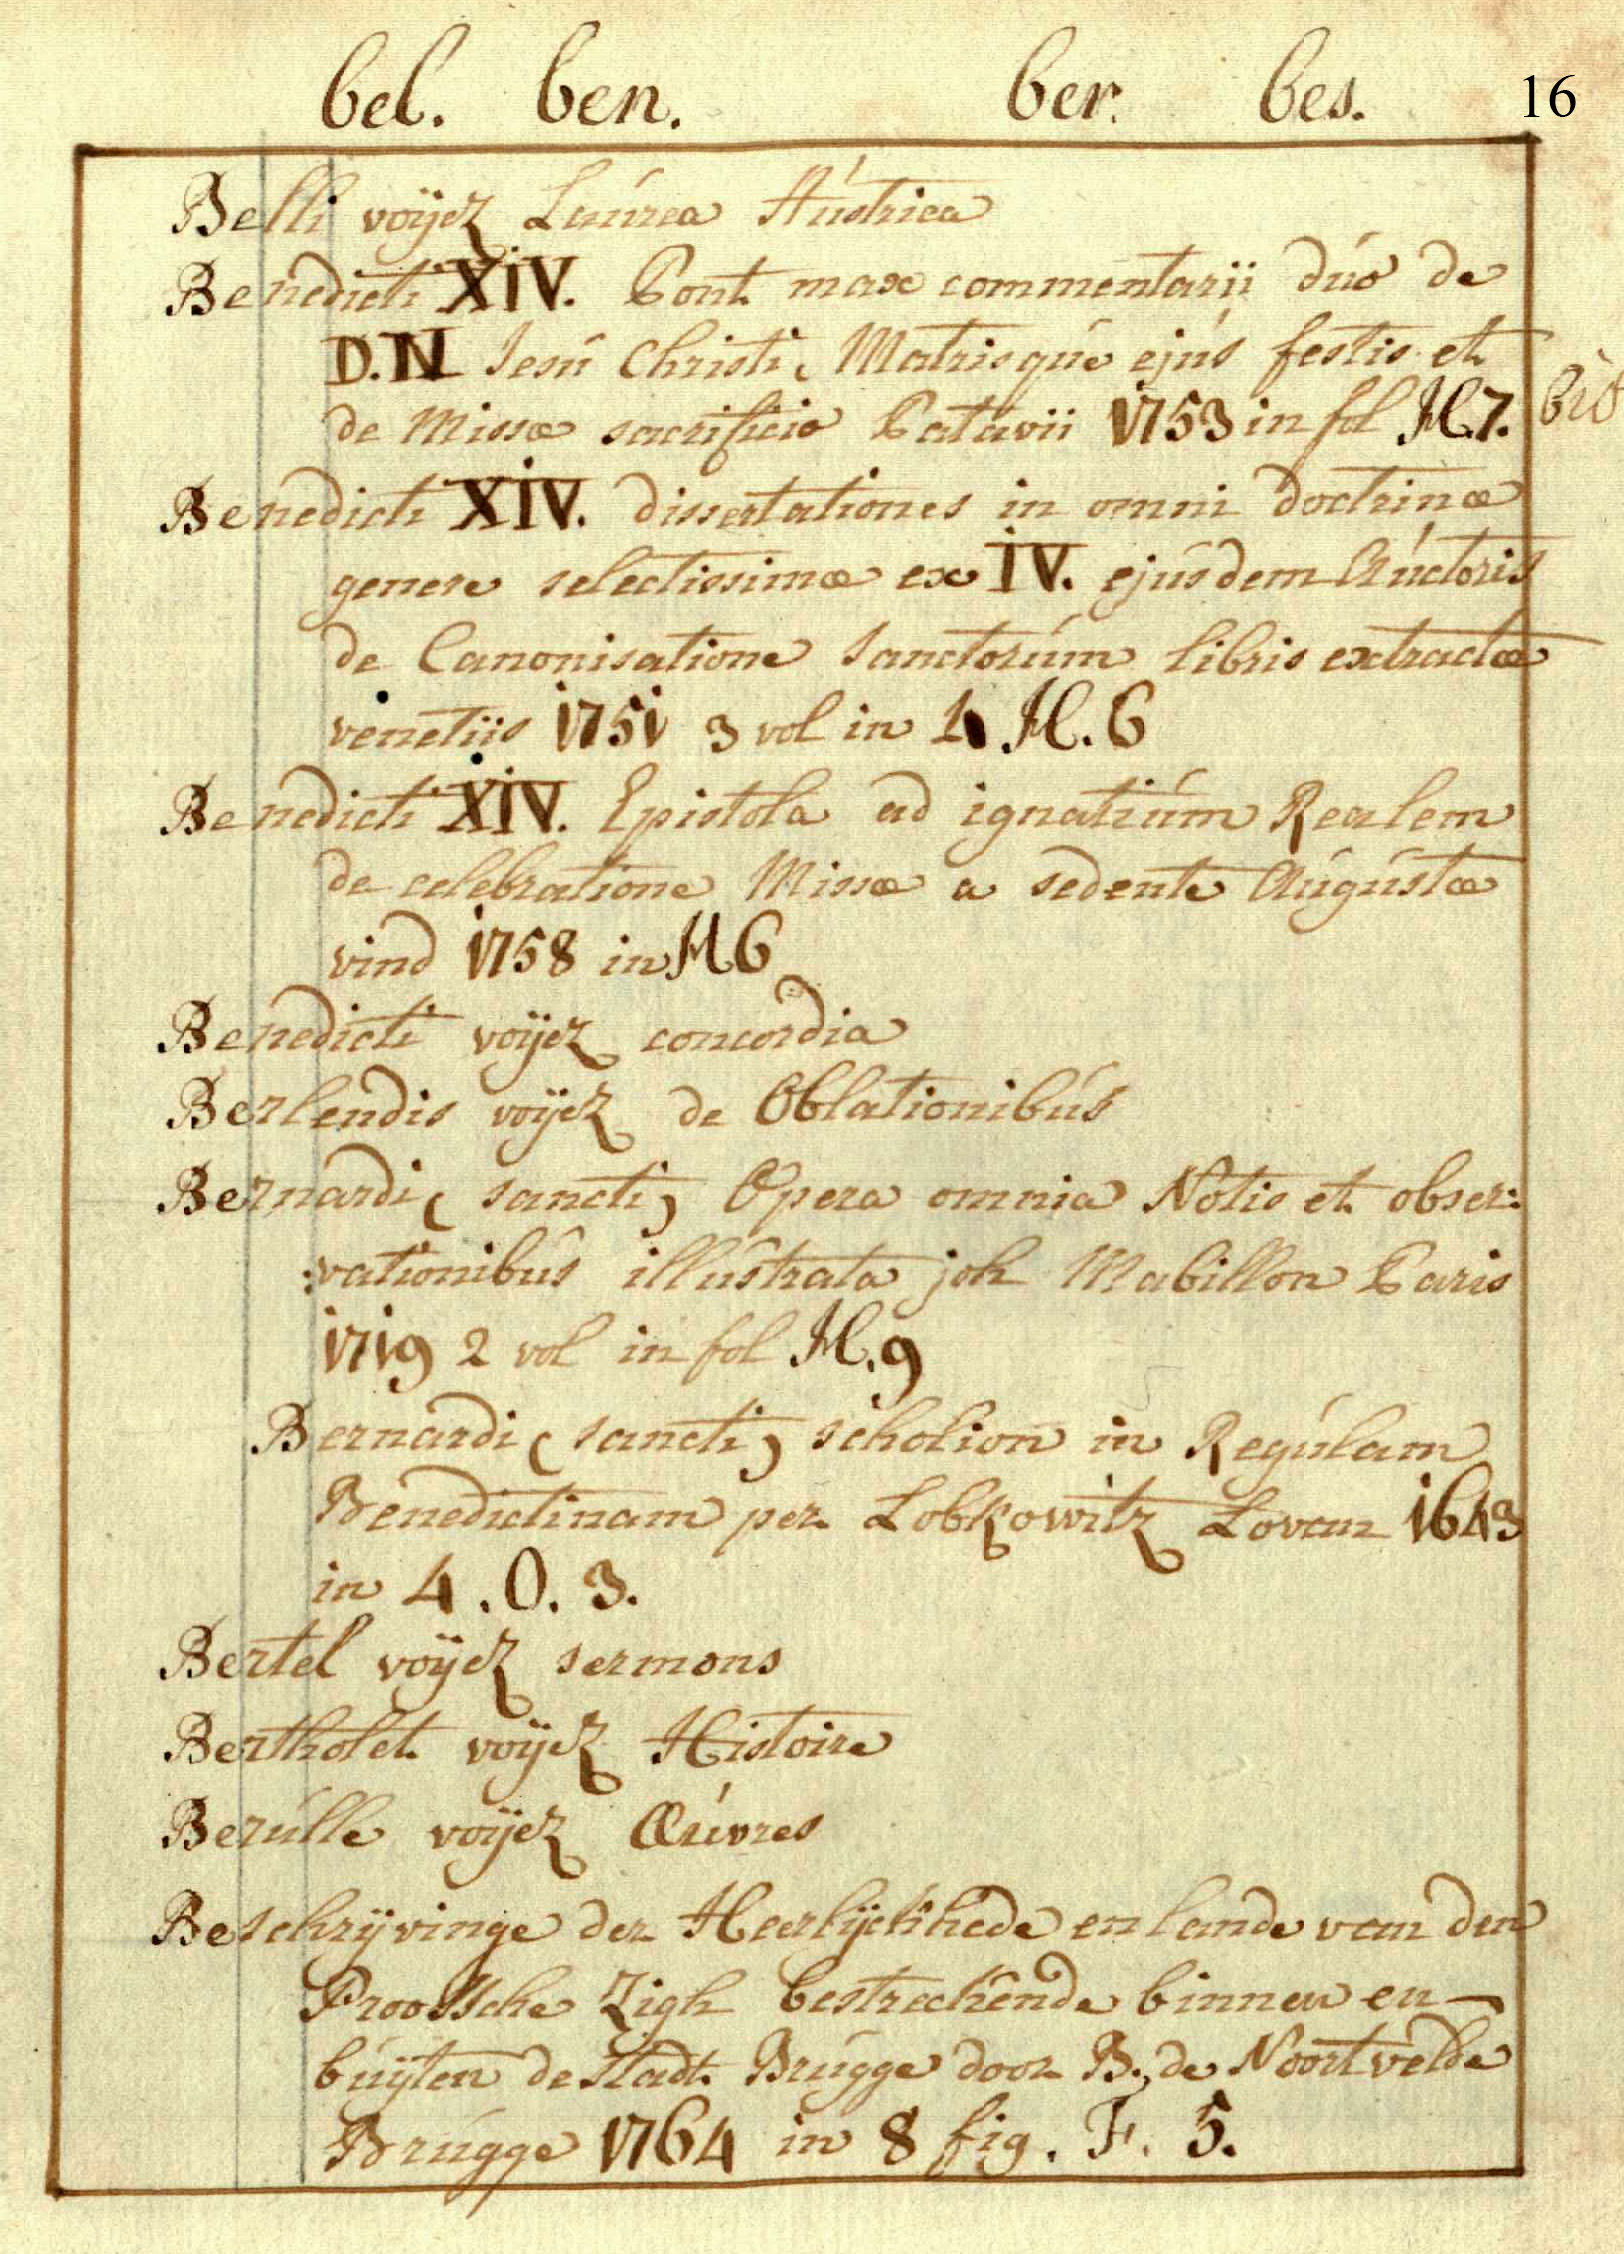 bel. ben. ber. bes. 16
Belli voÿez Laúrea Aústrica
Benedicti XIV. Pont max commentarii dúo de
D.N Jesú Christi, Matrisqúe ejús festis et
de Missæ sacrificio Patavii 1753 in fol M.7.
Benedicti XIV. dissertationes in omni doctrinæ
genere selectissimæ ex IV. ejúsdem Aúctoris
de Canonisatione Sanctorúm libris extractæ
venetiis 1751 3 vol in 4 M.6
Benedicti XIV. Epistola ad ignatiúm Realem
de celebratione Missæ a sedente Aúgústæ
vind 1758 in M6
Benedicti voÿez concordia
Berlendis voÿez de Oblationibús
Bernardi (sancti) Opera omnia Notis et obser:
:vationibús illústrata joh Mabillon Paris
1719 2 vol in fol M.9
Bernardi (sancti) scholion in Regúlam
Benedictinam per Lobkowitz Lovan 1643
in 4. O. 3.
Bertel voÿez sermons
Bertholet voÿez Histoire
Berúlle voÿez Œúvres
Beschrÿvinge der Heerlÿckhede en lande van den
Proossche Ligh bestreckende binnen en
búÿten de stadt Brúgge door B. de Noortvelde
Brúgge 1764 in 8 fig. F. 5.